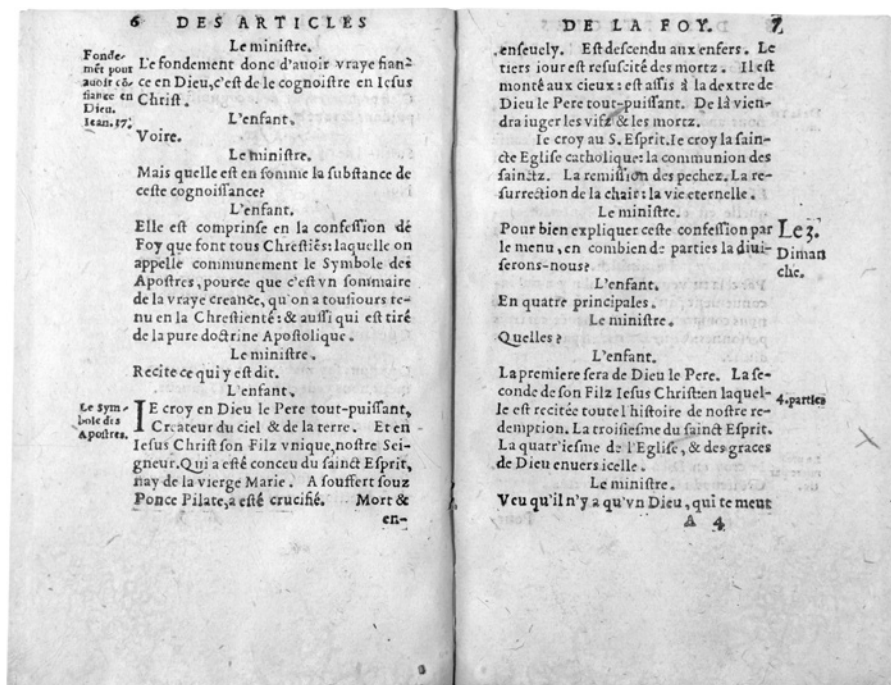 6 DES ARTICLES
Le miniſtre.
Fonde-
mēt pour
auoir cō-
fiance en
Dieu.
Iean.17.
Le fondement donc d'auoir vraye fian-
ce en Dieu,c'eſt de le cognoiſtre en Ieſus
Chriſt.
L'enfant.
Voire.
Le miniſtre.
Mais quelle eſt en ſomme la ſubſtance de
ceſte cognoiſſance?
L'enfant.
Elle eſt comprinſe en la confeſſion de
Foy que font tous Chreſtiēs: laquelle on
appelle communement le Symbole des
Apoſtres, pource que c'eſt vn ſommaire
de la vraye creance, qu'on a touſiours te-
nu en la Chreſtienté: & auſſi qui eſt tiré
de la pure doctrine Apoſtolique.
Le miniſtre.
Recite ce qui y eſt dit.
L'enfant.
Le Sym-
bole des
Apoſtres.
IE croy en Dieu le Pere tout-puiſſant,
Createur du ciel & de la terre. Et en
Ieſus Chriſt ſon Filz vnique, noſtre Sei-
gneur. Qui a eſté conceu du ſainct Eſprit,
nay de la vierge Marie. A ſouffert ſouz
Ponce Pilate, a eſté crucifié. Mort &
en-
DE LA FOY. 7
enſeuely. Eſt deſcendu aux enfers. Le
tiers iour eſt reſuſcité des mortz. Il eſt
monté aux cieux: eſt aſſis à la dextre de
Dieu le Pere tout-puiſſant. De là vien-
dra iuger les vifz & les mortz.
Ie croy au S. Eſprit. Ie croy la ſain-
cte Egliſe catholique: la communion des
ſainctz. La remiſſion des pechez. La re-
ſurrection de la chair: la vie eternelle.
Le miniſtre.
Pour bien expliquer ceſte confeſſion par
le menu, en combien de parties la diui-
ſerons-nous?
Le 3.
Diman
che.
L'enfant.
En quatre principales.
Le miniſtre.
Quelles?
L'enfant.
La premiere ſera de Dieu le Pere. La ſe-
conde de ſon Filz Ieſus Chriſt: en laquel-
le eſt recitée toute l'hiſtoire de noſtre re-
demption. La troiſieſme du ſainct Eſprit.
La quatr'ieſme de l'Egliſe, & des graces
de Dieu enuers icelle.
4.parties
Le miniſtre.
Veu qu'il n'y a qu'vn Dieu, qui te meut
A 4